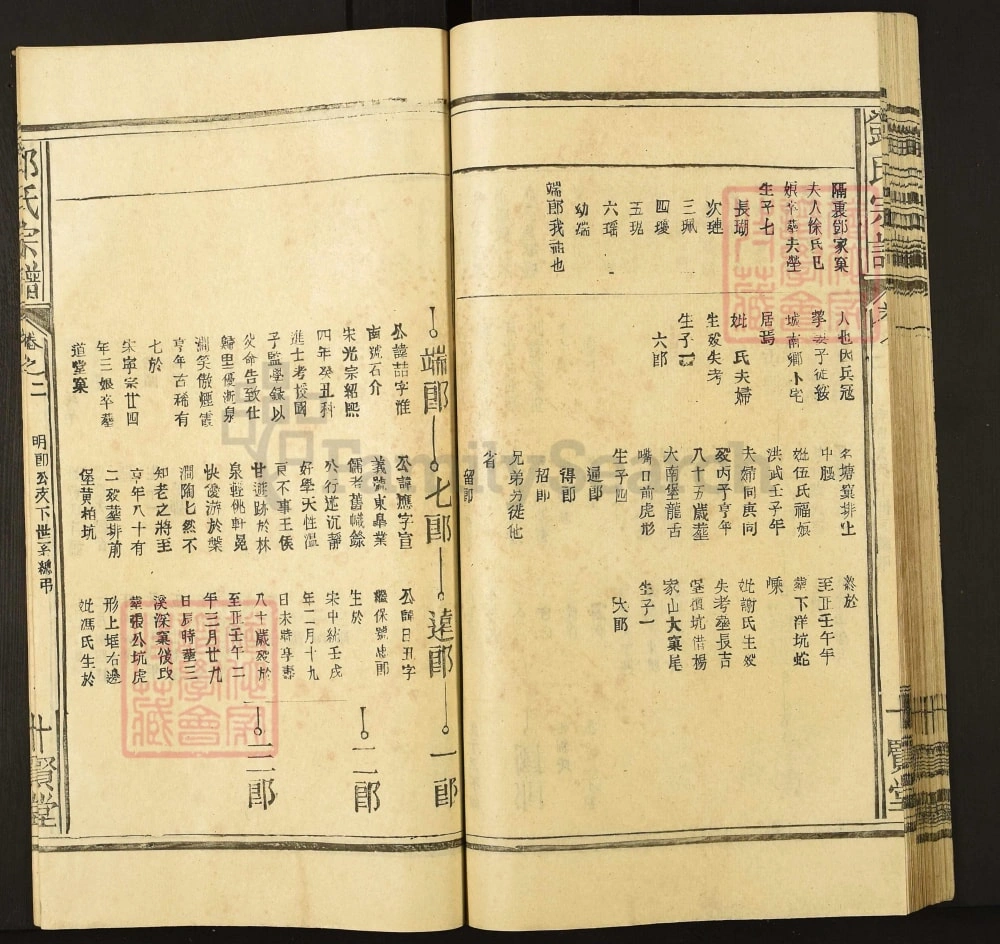 鄧氏宗譜
隔裏鄧家窠
夫人徐氏巳
娘卒葬夫塋
生子七
長瑚
次璉
三珮
四瓊
五琩
六瑶
幼端
端郎我祖也
人也因兵寇
挈妻子徙綏
城南鄉小宅
居焉
妣 氏夫婦
生歿失考
生子一
六郎
名塘窠排上
中腦
妣伍氏福娘
洪武壬子年
夫婦同庚同
歿丙子享年
八十五歲葬
大南堡龍舌
嘴口前虎形
生子四
通郎
得郎
招郎
留郎
兄弟另徙他
省
歿於
至正壬午年
葬下洋坑蛇
嵊
妣謝氏生歿
失考葬長吉
堡價坑借楊
家山大窠尾
生子一
大郎
賢堂
端郎
七郎
遠郎
一郎
二郎
三郎
公諱喆字惟
南號石介
宋光宗紹熙
四年癸丑科
進士考授國
子監學錄以
父命告致仕
歸里優游泉
澗笑傲煙霞
享年古稀有
七於
宋寧宗廿四
年三娘卒葬
道堂窠
公諱應字宣
義號東臯業
儒者舊幟錄
公行逑沉靜
好學天性溫
良不事王侯
甘遯跡於林
泉輕佻軒冕
快優游於槃
澗陶乚然不
知老之將至
享年八十有
二歿葬排前
堡黄柏坑
公諱日丑字
繼保號邈郎
生於
宋中統壬戌
年二月十九
日未時享壽
八十歲歿於
至正壬午二
年三月廿九
日辰時葬三
溪深窠後改
葬張公坑虎
形上堀右邊
妣馮氏生於
鄧氏宗譜
卷之二
明郎公支下世系總弔
十賢堂
FamilySearch